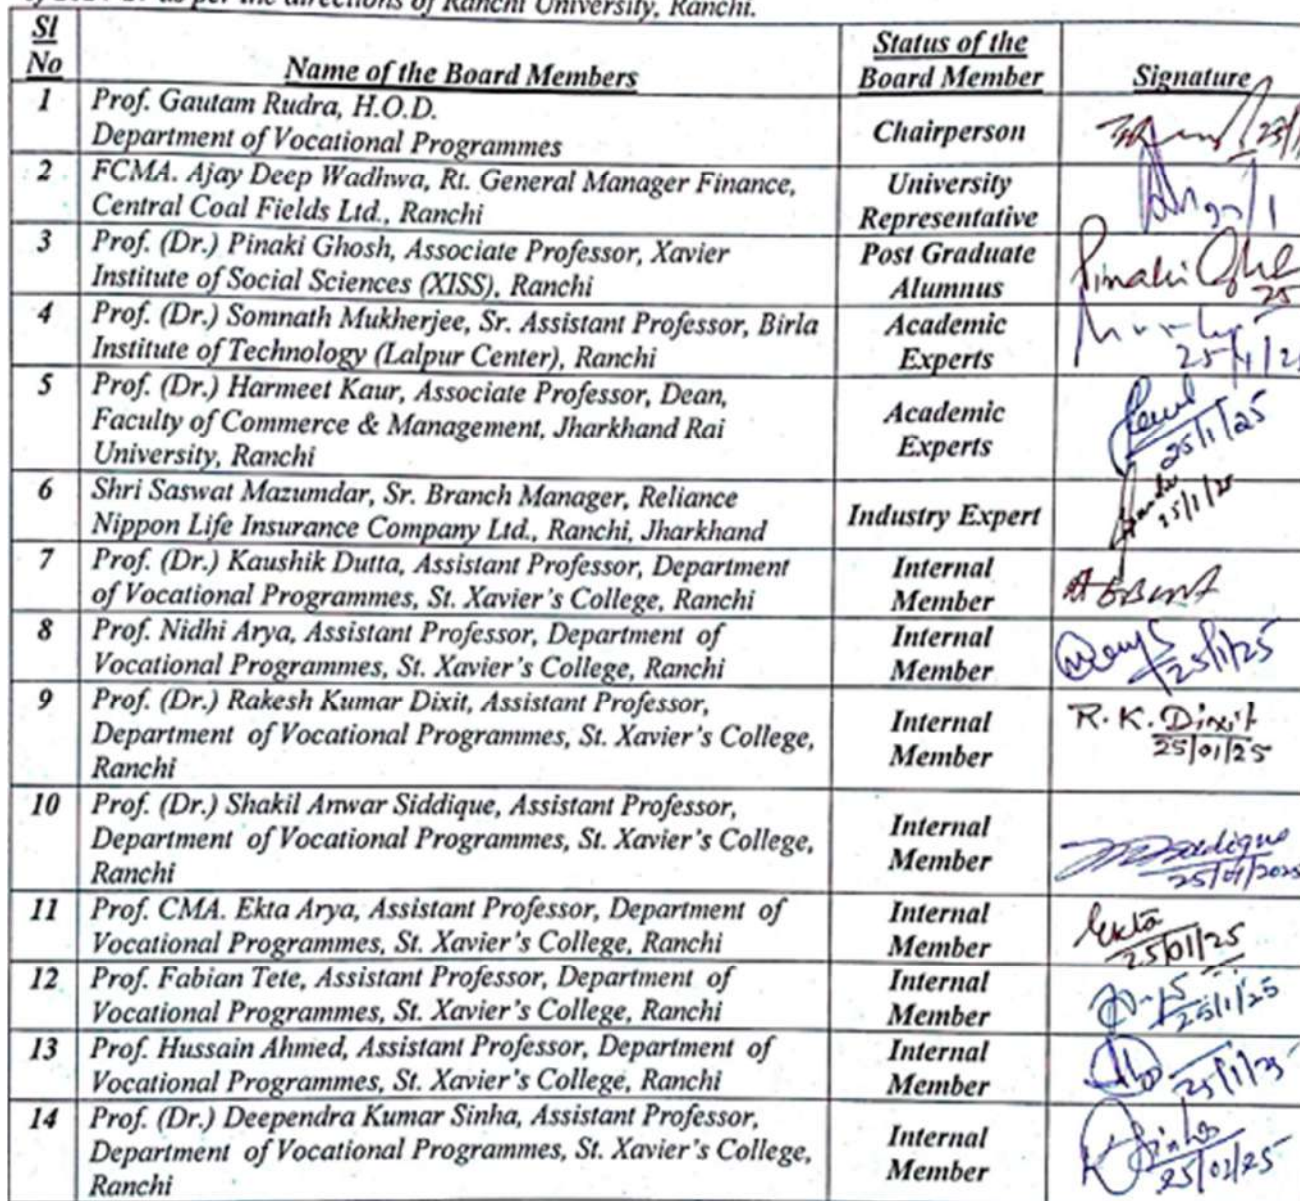 as per the directions of Ranchi University, Ranchi.
Sl No | Name of the Board Members | Status of the Board Member | Signature
1 Prof. Gautam Rudra, H.O.D.
Department of Vocational Programmes
Chairperson
2 FCMA. Ajay Deep Wadhwa, Rt. General Manager Finance,
Central Coal Fields Ltd., Ranchi
University
Representative
3 Prof. (Dr.) Pinaki Ghosh, Associate Professor, Xavier
Institute of Social Sciences (XISS), Ranchi
Post Graduate
Alumnus
Pinaki
25
4 Prof. (Dr.) Somnath Mukherjee, Sr. Assistant Professor, Birla
Institute of Technology (Lalpur Center), Ranchi
Academic
Experts
25/1/2
5 Prof. (Dr.) Harmeet Kaur, Associate Professor, Dean,
Faculty of Commerce & Management, Jharkhand Rai
University, Ranchi
Academic
Experts
25/1/25
6 Shri Saswat Mazumdar, Sr. Branch Manager, Reliance
Nippon Life Insurance Company Ltd., Ranchi, Jharkhand
Industry Expert
25/1/25
7 Prof. (Dr.) Kaushik Dutta, Assistant Professor, Department
of Vocational Programmes, St. Xavier's College, Ranchi
Internal
Member
8 Prof. Nidhi Arya, Assistant Professor, Department of
Vocational Programmes, St. Xavier's College, Ranchi
Internal
Member
25/1/25
9 Prof. (Dr.) Rakesh Kumar Dixit, Assistant Professor,
Department of Vocational Programmes, St. Xavier's College,
Ranchi
Internal
Member
R. K. Dixit
25/01/25
10 Prof. (Dr.) Shakil Anwar Siddique, Assistant Professor,
Department of Vocational Programmes, St. Xavier's College,
Ranchi
Internal
Member
25/01/2025
11 Prof. CMA. Ekta Arya, Assistant Professor, Department of
Vocational Programmes, St. Xavier's College, Ranchi
Internal
Member
Ekta
25/01/25
12 Prof. Fabian Tete, Assistant Professor, Department of
Vocational Programmes, St. Xavier's College, Ranchi
Internal
Member
25/1/25
13 Prof. Hussain Ahmed, Assistant Professor, Department of
Vocational Programmes, St. Xavier's College, Ranchi
Internal
Member
25/1/25
14 Prof. (Dr.) Deependra Kumar Sinha, Assistant Professor,
Department of Vocational Programmes, St. Xavier's College,
Ranchi
Internal
Member
Sinha
25/01/25